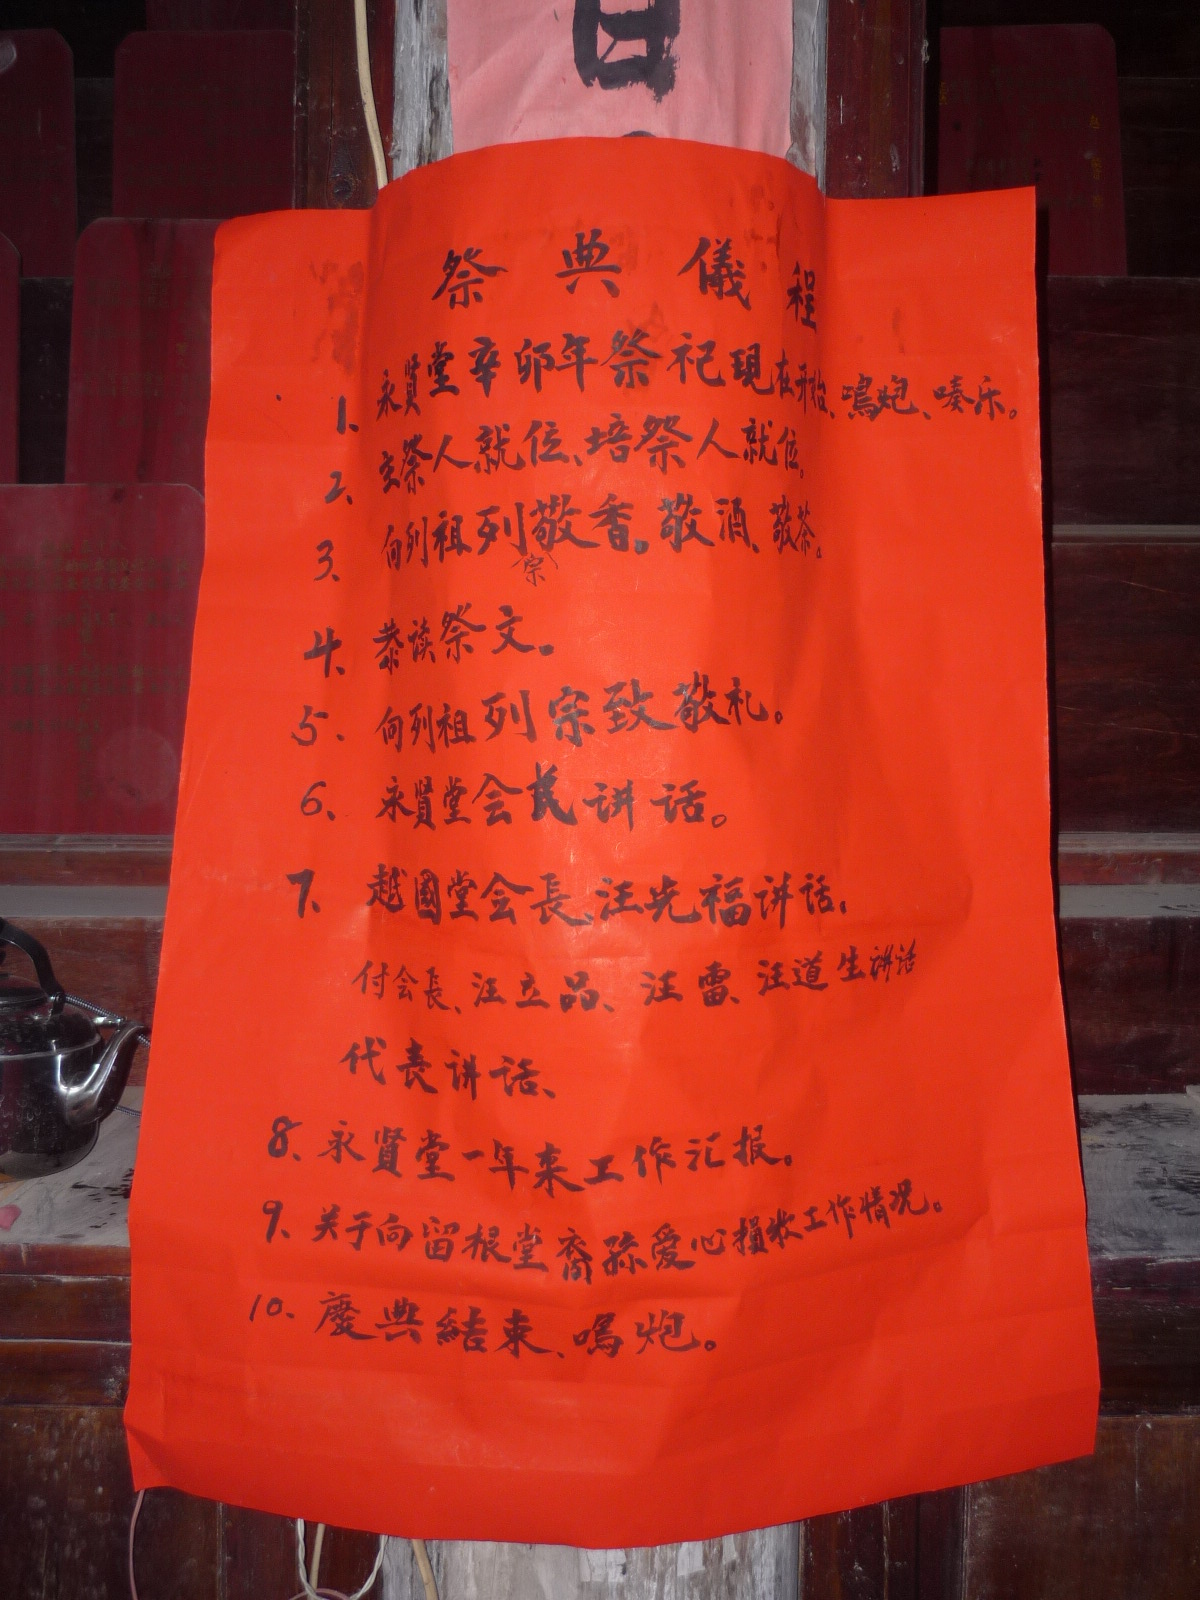 日
祭典儀程
1、永賢堂辛卯年祭祀現在开始、鳴炮、奏乐。
2、主祭人就位、培祭人就位。
3、向列祖列宗敬香。敬酒、敬茶。
4、恭读祭文。
5、向列祖列宗致敬礼。
6、永賢堂会長讲话。
7、越國堂会長、汪先福讲话、
付会長、汪立品、汪雷、汪道生讲话
代表讲话、
8、永賢堂一年来工作汇报。
9、关于向留根堂裔孫爱心損收工作情况。
10、慶典結束、鳴炮。